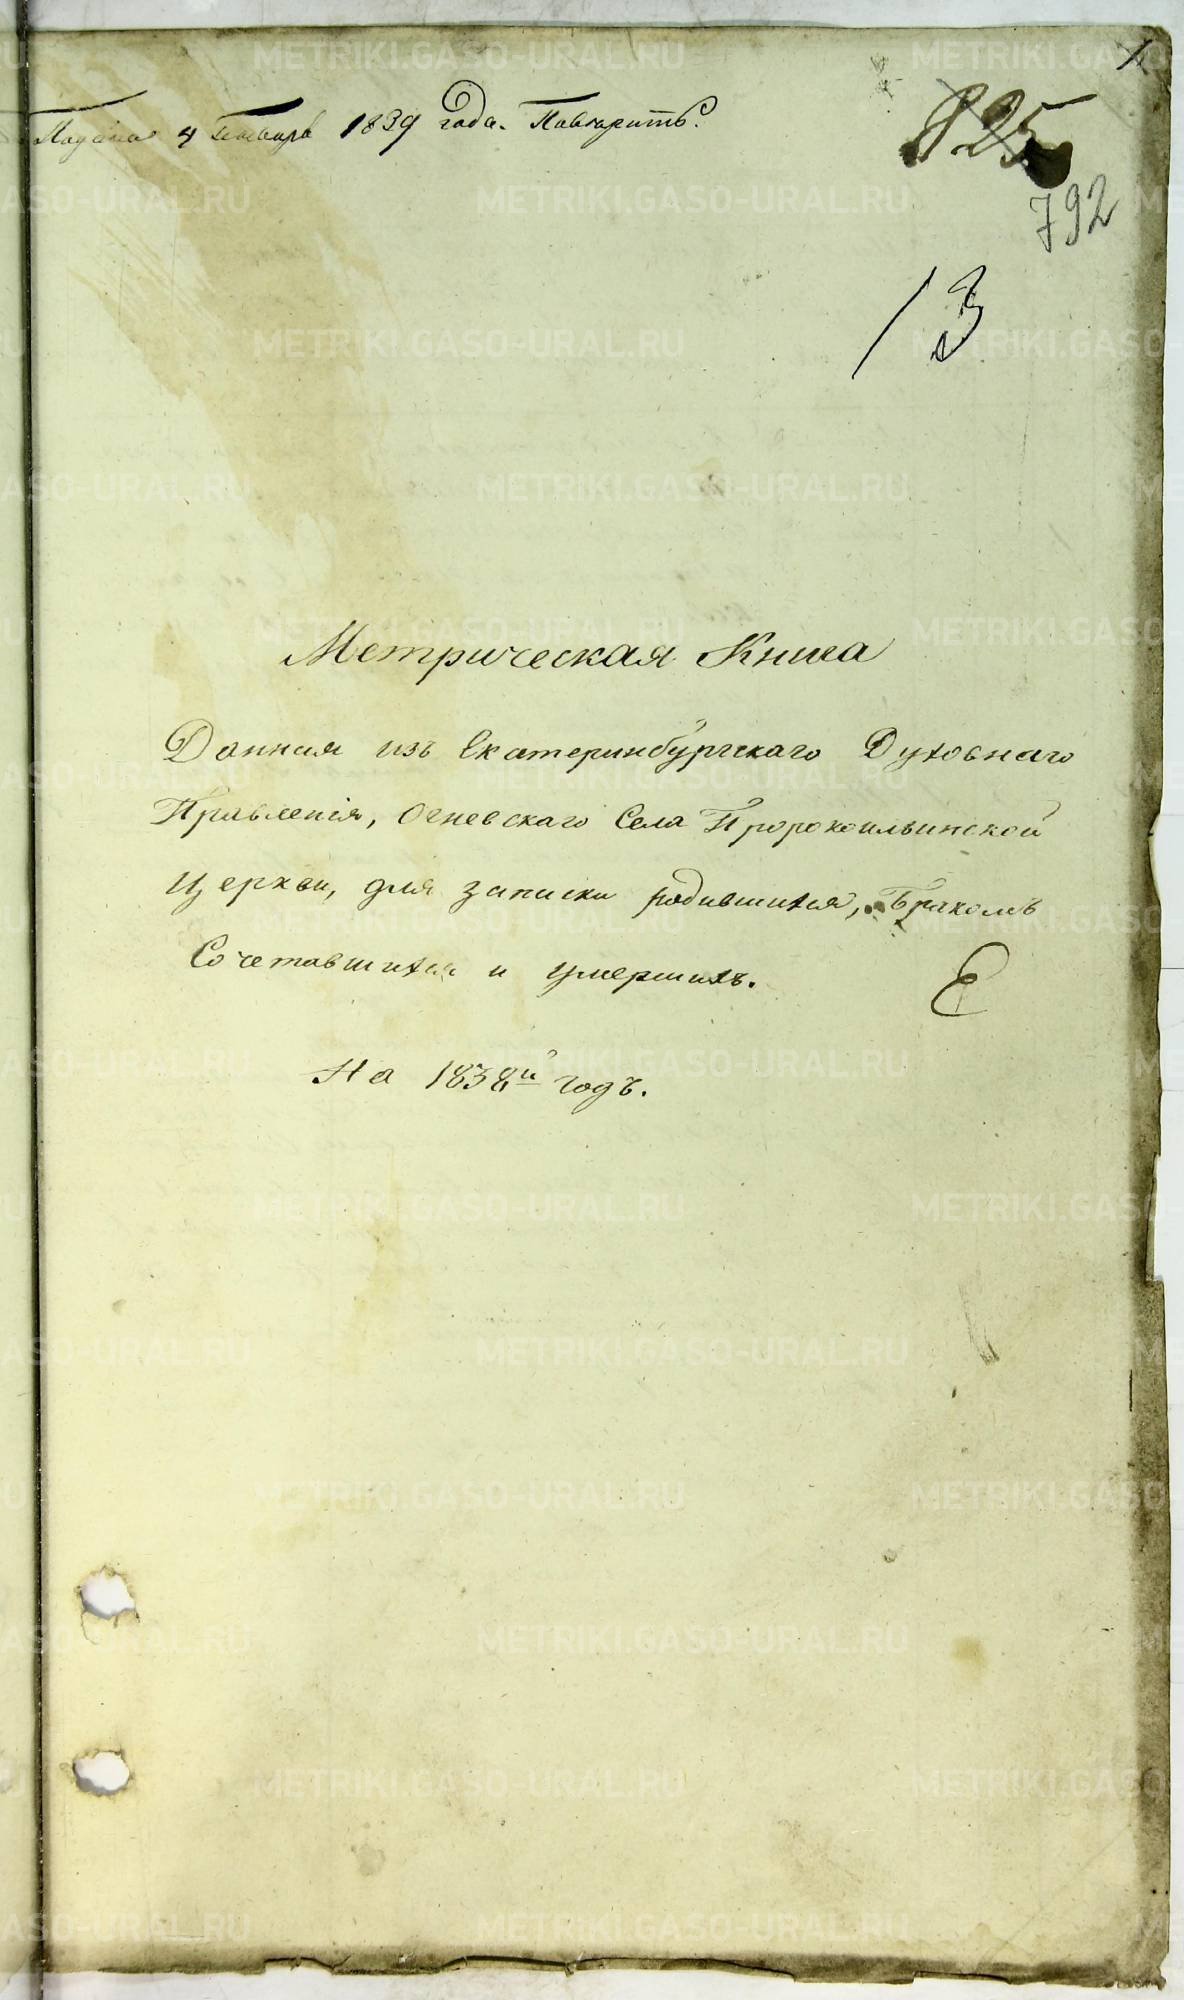 Подана 4 Генваря 1839 года. Повѣрить.
1
825
792
13
Метрическая Книга
Данная изъ Екатеринбургскаго Духовнаго
Правленія, Огневскаго Села Пророкоильинской
Церкви, для записки родившихся, Бракомъ
Сочетавшихся и умершихъ.
Е
На 1838й годъ.
METRIKI.GASO-URAL.RU